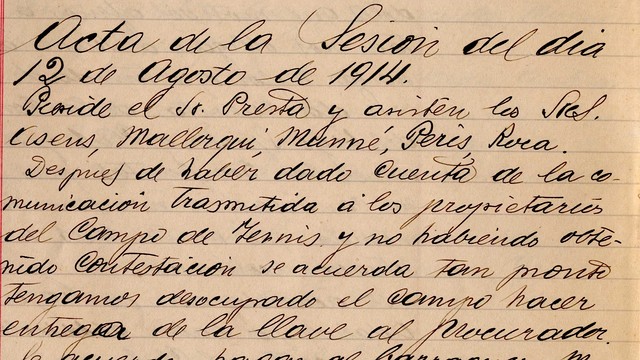 Acta de la Sesion del dia
12 de Agosto de 1914.
Preside el Sr. Presta y asisten los Sres.
Asens, Mallorqui, Munné, Peris, Roca.
Despues de haber dado cuenta de la co-
municación trasmitida á los propietarios
del Campo de Tennis y no habiendo obte-
nido contestación se acuerda tan pronto
tengamos desocupado el campo hacer
entrega de la llave al procurador.
Se acuerda pagar al